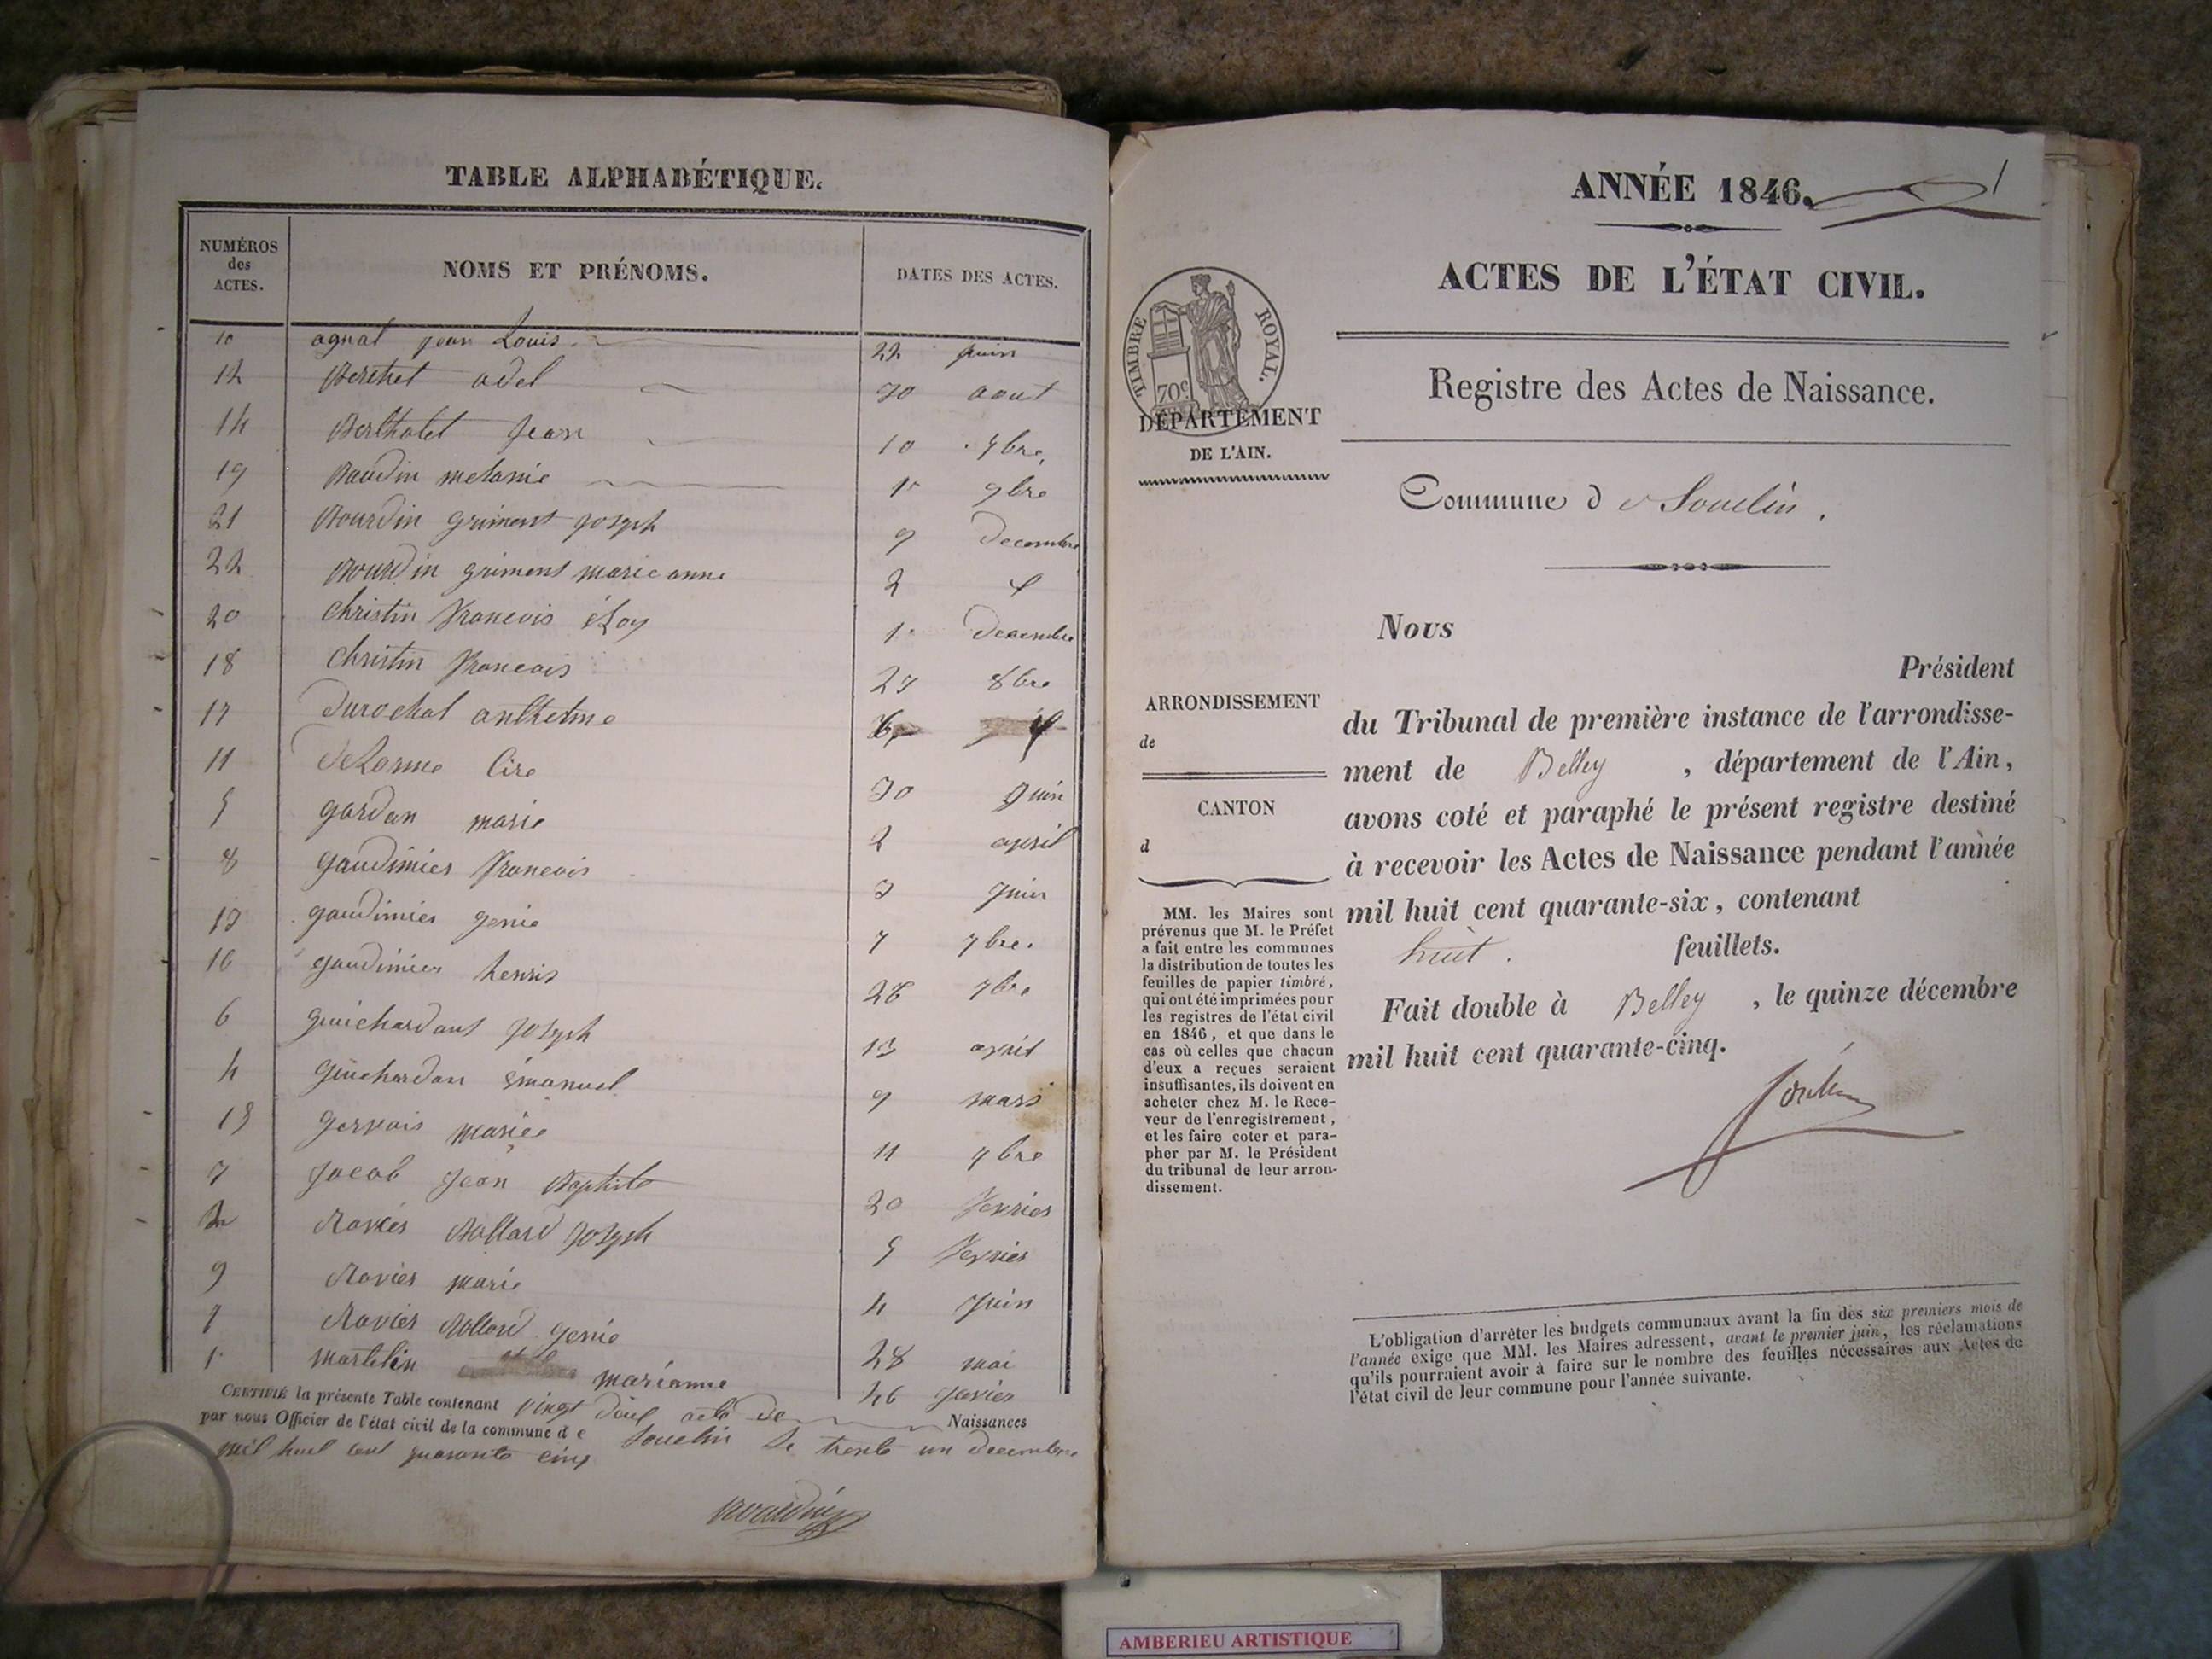 TABLE ALPHABÉTIQUE.
NUMÉROS des ACTES. NOMS ET PRÉNOMS. DATES DES ACTES.
10 agnat jean Louis 22 juin
12 Berthet adel 30 aout
14 Bertholet Jean 10 7bre,
19 Baudin melanie 1r 9bre
21 Bourdin griment joseph 9 Decembre
22 Bourdin griment marie anne 2
20 christin francois éloy 1r Decembre
18 christin francois 27 8bre
17 Durochat anthelme 6
11 Delorme 30 Juin
5 gardan marie 2 avril
8 gaudimier francois 3 Juin
13 gaudimier genie 7 7bre.
16 gaudimier henris 28 7bre
6 guichardant joseph 13 avril
4 guichardan émanuel 9 mars
15 gervais mariee 11 7bre
Jacob Jean Baptiste 20 fevrier
2 Ravier Rollard joseph 5 fevrier
9 Ravier marie 4 Juin
7 Ravier Rollard genie 28 mai
1r martelin marianne janvier
CERTIFIÉ la présente Table contenant vingt deux acte de Naissances
par nous Officier de l'état civil de la commune d e Souclin le trente un decembre
mil huit cent quarante cinq
Bourdin
1
ANNÉE 1846.
ACTES DE L'ÉTAT CIVIL.
TIMBRE ROYAL.
70c
DÉPARTEMENT
DE L'AIN.
Registre des Actes de Naissance.
Commune d e Souclin.
Nous
Président
ARRONDISSEMENT
de
CANTON
d
du Tribunal de première instance de l'arrondisse-
ment de Belley, département de l'Ain,
avons coté et paraphé le présent registre destiné
à recevoir les Actes de Naissance pendant l'année
mil huit cent quarante-six, contenant
huit. feuillets.
Fait double à Belley, le quinze décembre
mil huit cent quarante-cinq.
MM. les Maires sont
prévenus que M. le Préfet
a fait entre les communes
la distribution de toutes les
feuilles de papier timbré,
qui ont été imprimées pour
les registres de l'état civil
en 1846, et que dans le
cas où celles que chacun
d'eux a reçues seraient
insuffisantes, ils doivent en
acheter chez M. le Rece-
veur de l'enregistrement,
et les faire coter et para-
pher par M. le Président
du tribunal de leur arron-
dissement.
L'obligation d'arrêter les budgets communaux avant la fin des six premiers mois de
l'année exige que MM. les Maires adressent, avant le premier juin, les réclamations
qu'ils pourraient avoir à faire sur le nombre des feuilles nécessaires aux Actes de
l'état civil de leur commune pour l'année suivante.
AMBERIEU ARTISTIQUE